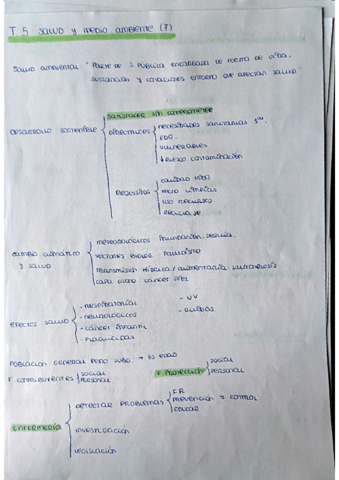 T 5 SALUD Y MEDIO AMBIENTE (7)
SALUD AMBIENTAL: "PARTE DE S PÚBLICA ENCARGADA DE FORMA DE VIDA,
SUSTANCIAS Y CONDICIONES ENTORNO QUE AFECTAN SALUD"
SATISFACER SIN COMPROMETER
DESARROLLO SOSTENIBLE
DIRECTRICES
NECESIDADES SANITARIAS
VULNERABLES
CONTAMINACIÓN
REQUISITOS
CALIDAD VIDA
USO RECURSOS
RECICLAJE
CAMBIO CLIMÁTICO Y SALUD
METEOROLÓGICOS INUNDACIÓN, SEQUÍA
VECTORES PALUDISMO
TRANSMISIÓN HÍDRICA / ALIMENTARIA SALMONELOSIS
CAPA OZONO CÁNCER PIEL
EFECTOS SALUD
- RESPIRATORIAS
- NEUROLÓGICOS
- CÁNCER INFANTIL
- UV
POBLACIÓN GENERAL PERO SUBG → EDAD
F. CONTRIBUYENTES
SOCIAL
PERSONAL
F. PROTECCIÓN
SOCIAL
PERSONAL
ENFERMERÍA
DETECTAR PROBLEMAS
FR
PREVENCIÓN Y CONTROL
EDUCAR
INVESTIGACIÓN
LEGISLACIÓN